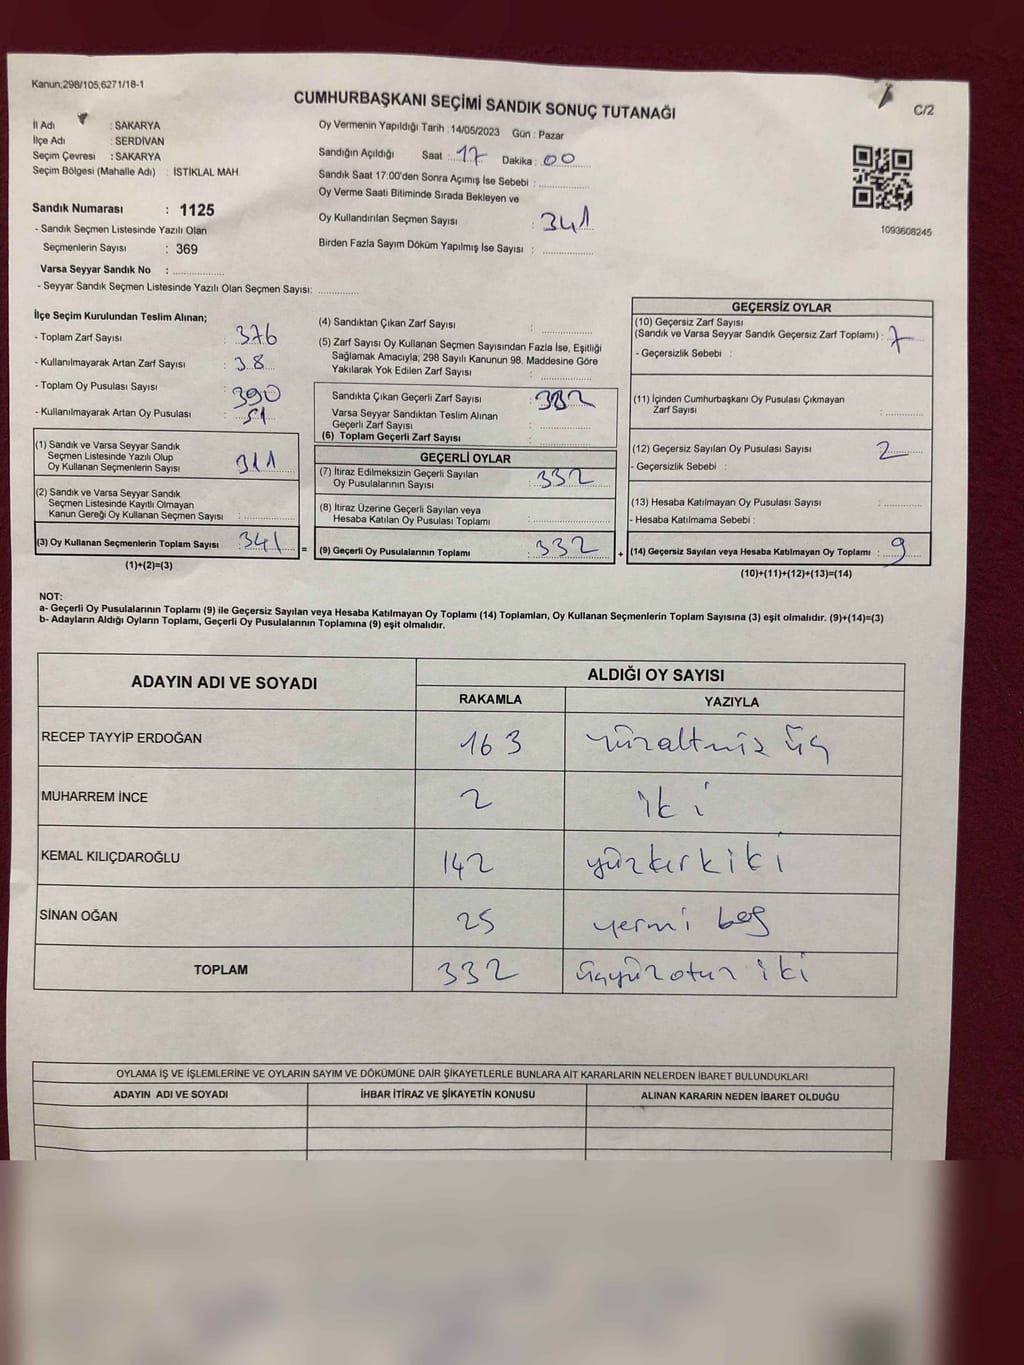 Kanun;298/105,6271/18-1
CUMHURBAŞKANI SEÇİMİ SANDIK SONUÇ TUTANAĞI
C/2
İl Adı : SAKARYA
İlçe Adı : SERDİVAN
Seçim Çevresi : SAKARYA
Seçim Bölgesi (Mahalle Adı) : İSTİKLAL MAH.
Sandık Numarası : 1125
- Sandık Seçmen Listesinde Yazılı Olan
Seçmenlerin Sayısı : 369
Varsa Seyyar Sandık No : ..............
- Seyyar Sandık Seçmen Listesinde Yazılı Olan Seçmen Sayısı: ...........
Oy Vermenin Yapıldığı Tarih : 14/05/2023 Gün : Pazar
Sandığın Açıldığı Saat : 17 Dakika : 00
Sandık Saat 17:00'den Sonra Açımış İse Sebebi : ..............
Oy Verme Saati Bitiminde Sırada Bekleyen ve
Oy Kullandırılan Seçmen Sayısı : 341
Birden Fazla Sayım Döküm Yapılmış İse Sayısı : ..............
1093608245
İlçe Seçim Kurulundan Teslim Alınan;
- Toplam Zarf Sayısı : 376
- Kullanılmayarak Artan Zarf Sayısı : 38
- Toplam Oy Pusulası Sayısı : 390
- Kullanılmayarak Artan Oy Pusulası : 51
(1) Sandık ve Varsa Seyyar Sandık
Seçmen Listesinde Yazılı Olup
Oy Kullanan Seçmenlerin Sayısı
(2) Sandık ve Varsa Seyyar Sandık
Seçmen Listesinde Kayıtlı Olmayan
Kanun Gereği Oy Kullanan Seçmen Sayısı : ..............
(3) Oy Kullanan Seçmenlerin Toplam Sayısı 341 =
(1)+(2)=(3)
(4) Sandıktan Çıkan Zarf Sayısı : ..............
(5) Zarf Sayısı Oy Kullanan Seçmen Sayısından Fazla İse, Eşitliği
Sağlamak Amacıyla; 298 Sayılı Kanunun 98. Maddesine Göre
Yakılarak Yok Edilen Zarf Sayısı : ..............
Sandıkta Çıkan Geçerli Zarf Sayısı :
Varsa Seyyar Sandıktan Teslim Alınan
Geçerli Zarf Sayısı : ..............
(6) Toplam Geçerli Zarf Sayısı : ..............
GEÇERLİ OYLAR
(7) İtiraz Edilmeksizin Geçerli Sayılan
Oy Pusulalarının Sayısı : 332
(8) İtiraz Üzerine Geçerli Sayılan veya
Hesaba Katılan Oy Pusulası Toplamı : ..............
(9) Geçerli Oy Pusulalarının Toplamı : 332 +
GEÇERSİZ OYLAR
(10) Geçersiz Zarf Sayısı
(Sandık ve Varsa Seyyar Sandık Geçersiz Zarf Toplamı) : 7
- Geçersizlik Sebebi :
(11) İçinden Cumhurbaşkanı Oy Pusulası Çıkmayan
Zarf Sayısı : ..............
(12) Geçersiz Sayılan Oy Pusulası Sayısı : 2
- Geçersizlik Sebebi :
(13) Hesaba Katılmayan Oy Pusulası Sayısı : ..............
- Hesaba Katılmama Sebebi :
(14) Geçersiz Sayılan veya Hesaba Katılmayan Oy Toplamı : 9
(10)+(11)+(12)+(13)=(14)
NOT:
a- Geçerli Oy Pusulalarının Toplamı (9) ile Geçersiz Sayılan veya Hesaba Katılmayan Oy Toplamı (14) Toplamları, Oy Kullanan Seçmenlerin Toplam Sayısına (3) eşit olmalıdır. (9)+(14)=(3)
b- Adayların Aldığı Oyların Toplamı, Geçerli Oy Pusulalarının Toplamına (9) eşit olmalıdır.
ADAYIN ADI VE SOYADI ALDIĞI OY SAYISI
RAKAMLA YAZIYLA
RECEP TAYYİP ERDOĞAN 163 yüzaltmış üç
MUHARREM İNCE 2 iki
KEMAL KILIÇDAROĞLU 142 yüzkırkiki
SİNAN OĞAN 25 yermi beş
TOPLAM 332 üçyüzotuz iki
OYLAMA İŞ VE İŞLEMLERİNE VE OYLARIN SAYIM VE DÖKÜMÜNE DAİR ŞİKAYETLERLE BUNLARA AİT KARARLARIN NELERDEN İBARET BULUNDUKLARI
ADAYIN ADI VE SOYADI İHBAR İTİRAZ VE ŞİKAYETİN KONUSU ALINAN KARARIN NEDEN İBARET OLDUĞU